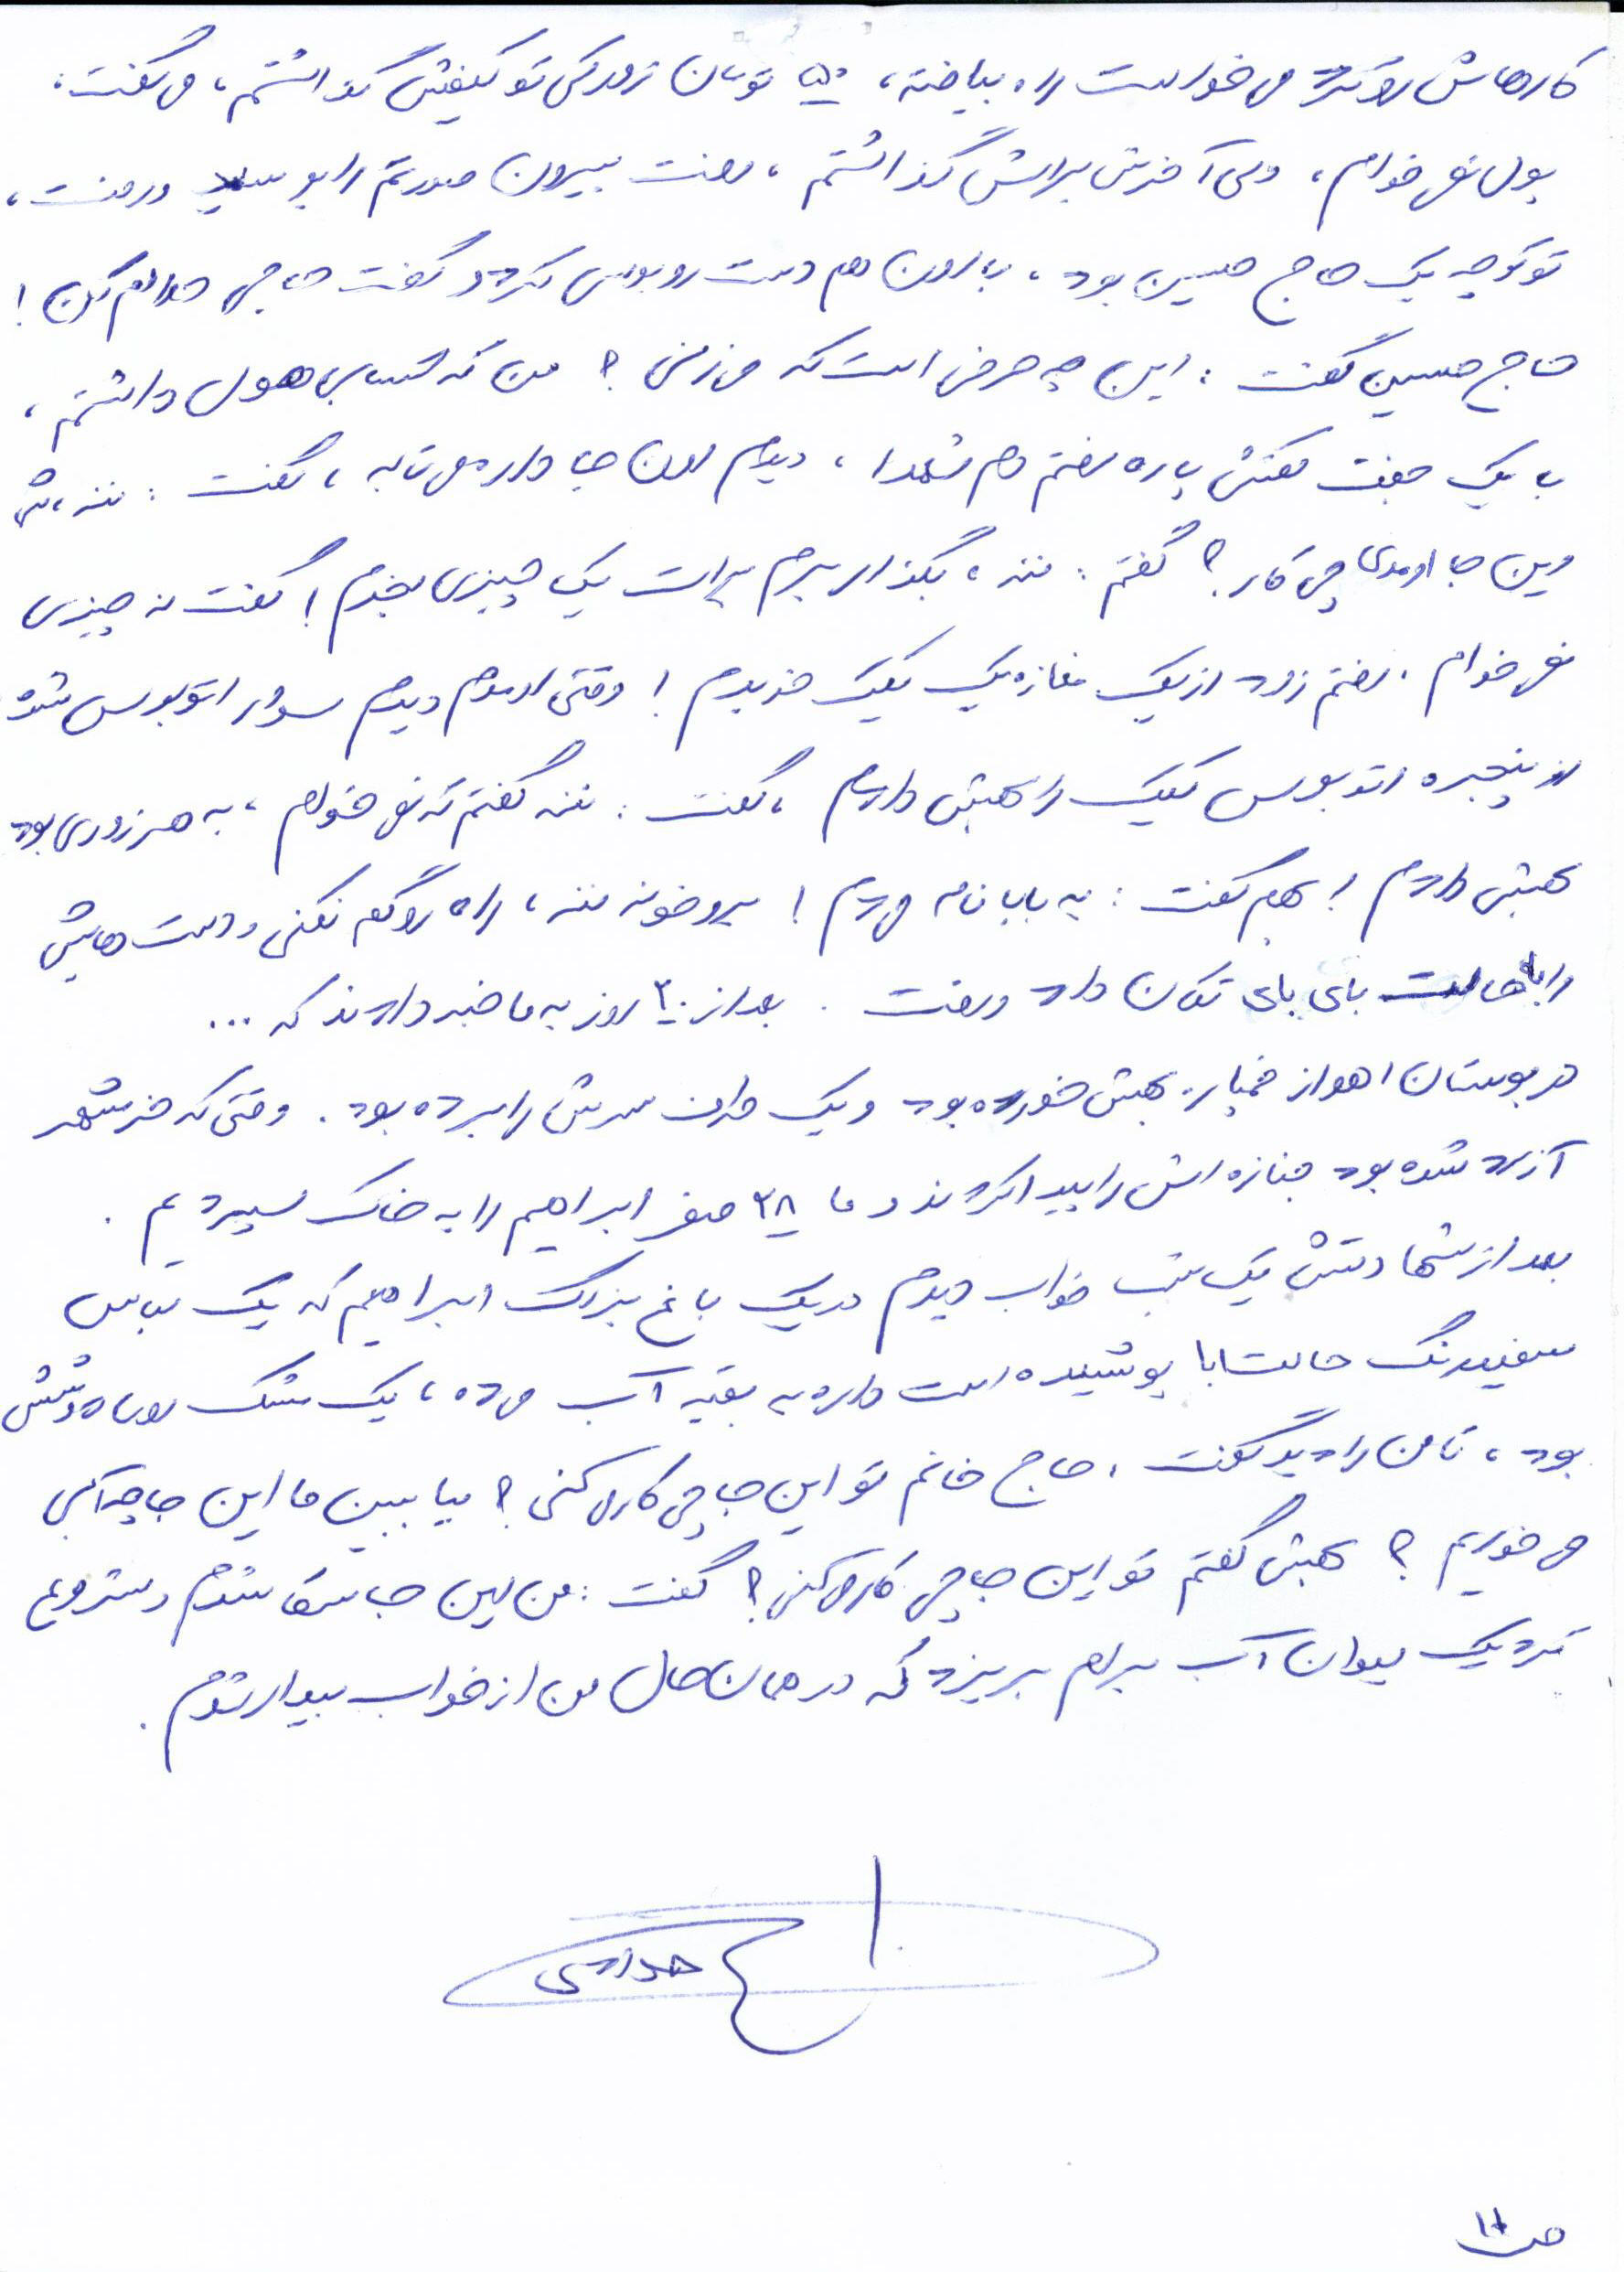 کارهاش رو کرد می خواست راه بیافته، ۵۰ تومان زورکی تو کیفش گذاشتم، می گفت،
پول نمی خوام، ولی آخرش براش گذاشتم، رفت بیرون صورتم را بوسید و رفت،
تو کوچه یک حاج حسین بود، با اون هم دست روبوسی کرد و گفت حاجی حلالم کن!
حاج حسین گفت: این چه حرفی است که می زنی؟ من که حسابی هول داشتم،
با یک جفت کفش پاره رفتم دم شهدا، دیدم اون جا داره می تابه، گفت: ننه،
این جا اومدی چی کار؟ گفتم: ننه، بگذار برم برات یک چیزی بخرم! گفت نه چیزی
نمی خوام. رفتم زود از یک مغازه یک کیک خریدم! وقتی اومدم دیدم سوار اتوبوس شده
از پنجره اتوبوس کیک را بهش دادم، گفت: ننه گفتم که نمی خوام، به هر زوری بود
بهش دادم! بهم گفت: به بابا نامه می دم! برو خونه ننه، راه رو گم نکنی و دست هایش
را با حالت بای بای تکان داد و رفت. بعد از ۲۰ روز به ما خبر دادند که ...
در بوستان اهواز خمپاره بهش خورده بود و یک طرف سرش را برده بود. وقتی که خرمشهر
آزاد شده بود جنازه اش را پیدا کردند و ما ۲۸ صفر ابراهیم را به خاک سپردیم.
بعد از شهادتش یک شب خواب دیدم در یک باغ بزرگ ابراهیم که یک لباس
سفیدرنگ حالت ابا پوشیده است داره به بقیه آب می ده، یک مشک روی دوشش
بود، تا من را دید گفت، حاج خانم تو این جا چی کار می کنی؟ بیا ببین ما این جا چه آبی
می خوریم؟ بهش گفتم تو این جا چی کار می کنی؟ گفت: من این جا سقا شدم و شروع
کرد یک لیوان آب برام بریزد که در همان حال من از خواب بیدار شدم.
ص ۱۱